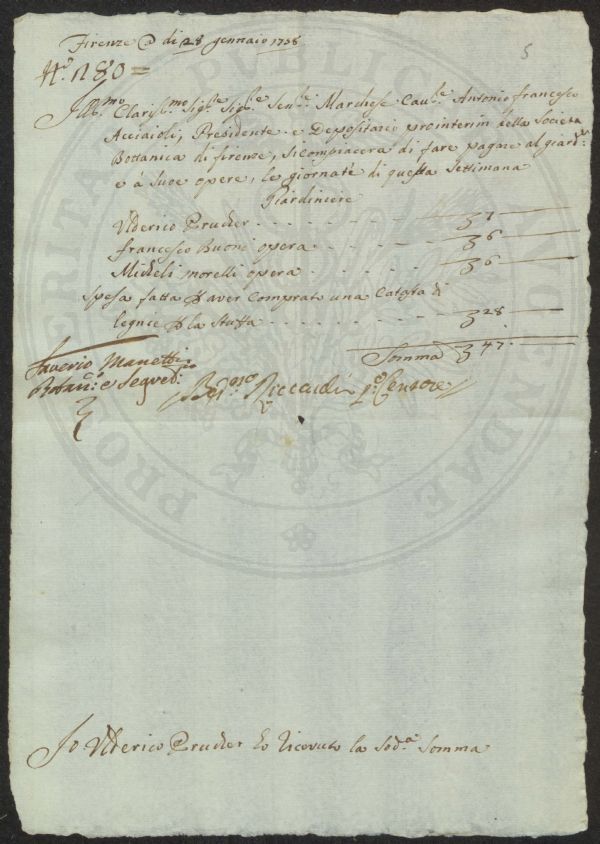 Firenze @ di 28 gennaio 1738
5
N.º 180 =
Ill.mo Claris.mo Sig.re Sig.re Sen.re Marchese Cav.re Antonio francesco
Acciaioli, Presidente e Depositario prointerim della Società
Bottanica di firenze, si compiacerà di fare pagare al giard.re
e à suoe opere, le giornate di questa Settimana
Giardiniere
Ulderico Prucker 7
francesco Buoni opera 6
Micheli morelli opera 6
Spesa fatta p aver Comprato una Catasta di
legnie p la Stuffa 28
Somma 47
Saverio Manetti
Botan.co e Segret.
Riccardi p.º Censore
PROSPERITATI PUBLICAE AUGENDAE
Io Ulderico Prucker ho ricevuto la Sod.a Somma